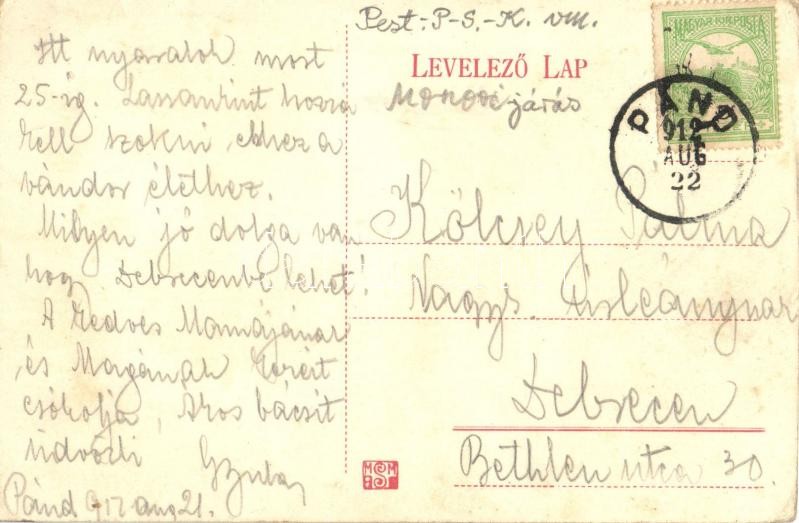 Pest-P-S.-K. vm.
LEVELEZŐ LAP
Monori járás
MAGYAR KIR. POSTA
PÁND
912
AUG
22
Itt nyaralok most
25-ig. Lassankint hozzá
kell szokni ehhez a
vándor élethez.
Milyen jó dolga van
hogy Debrecenbe lehet!
A kedves Mamájának
és Magának kezeit
csókolja, Áros bácsit
üdvözli Gyula
Pánd 912 aug 21.
Kölcsey Pálma
Nagys. Úrleánynak
Debrecen
Bethlen utca 30.